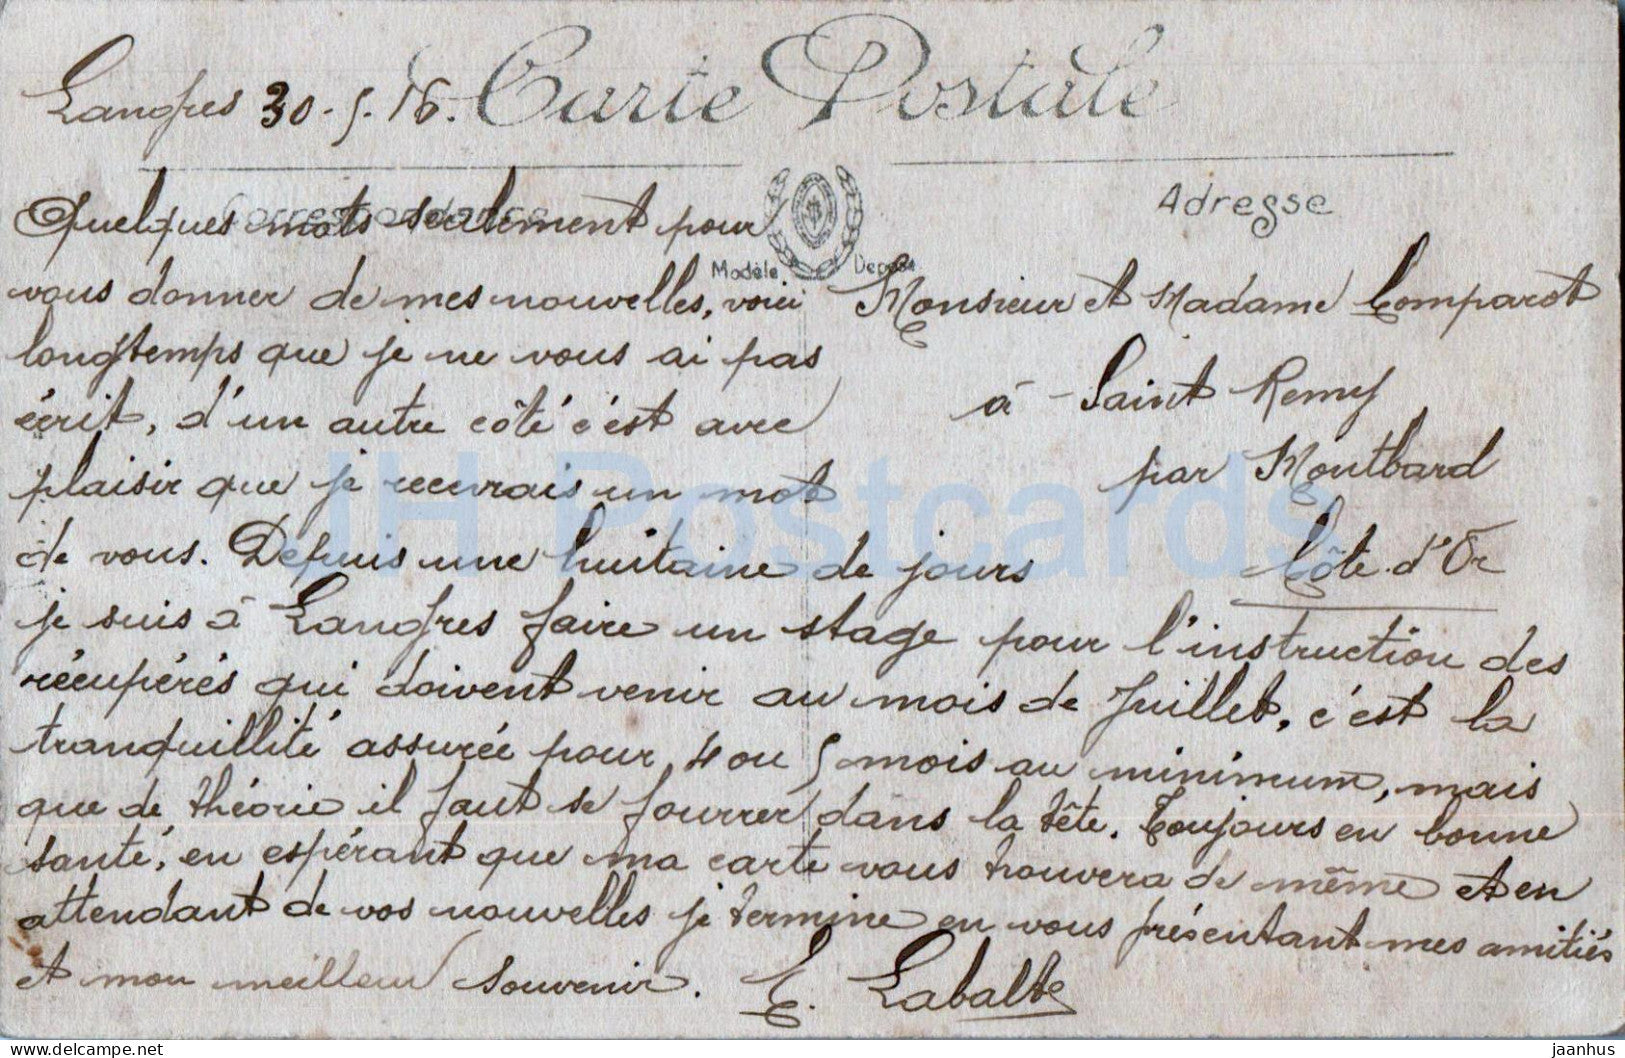 Carte Postale
Langres 30-5-16.
Correspondance
Adresse
Modèle Déposé
Quelques mots seulement pour
vous donner de mes nouvelles, voici
longtemps que je ne vous ai pas
écrit, d'un autre côté c'est avec
plaisir que je recevrais un mot
de vous. Depuis une huitaine de jours
je suis à Langres faire un stage pour l'instruction des
récupérés qui doivent venir au mois de Juillet, c'est la
tranquillité assurée pour 4 ou 5 mois au minimum, mais
que de théorie il faut se fourrer dans la tête. Toujours en bonne
santé, en espérant que ma carte vous trouvera de même et en
attendant de vos nouvelles je termine en vous présentant mes amitiés
et mon meilleur souvenir. E. Labalte
Monsieur et Madame Comparot
à Saint Remy
par Montbard
Côte d'Or
IH Postcards
delcampe.net
jaanhus